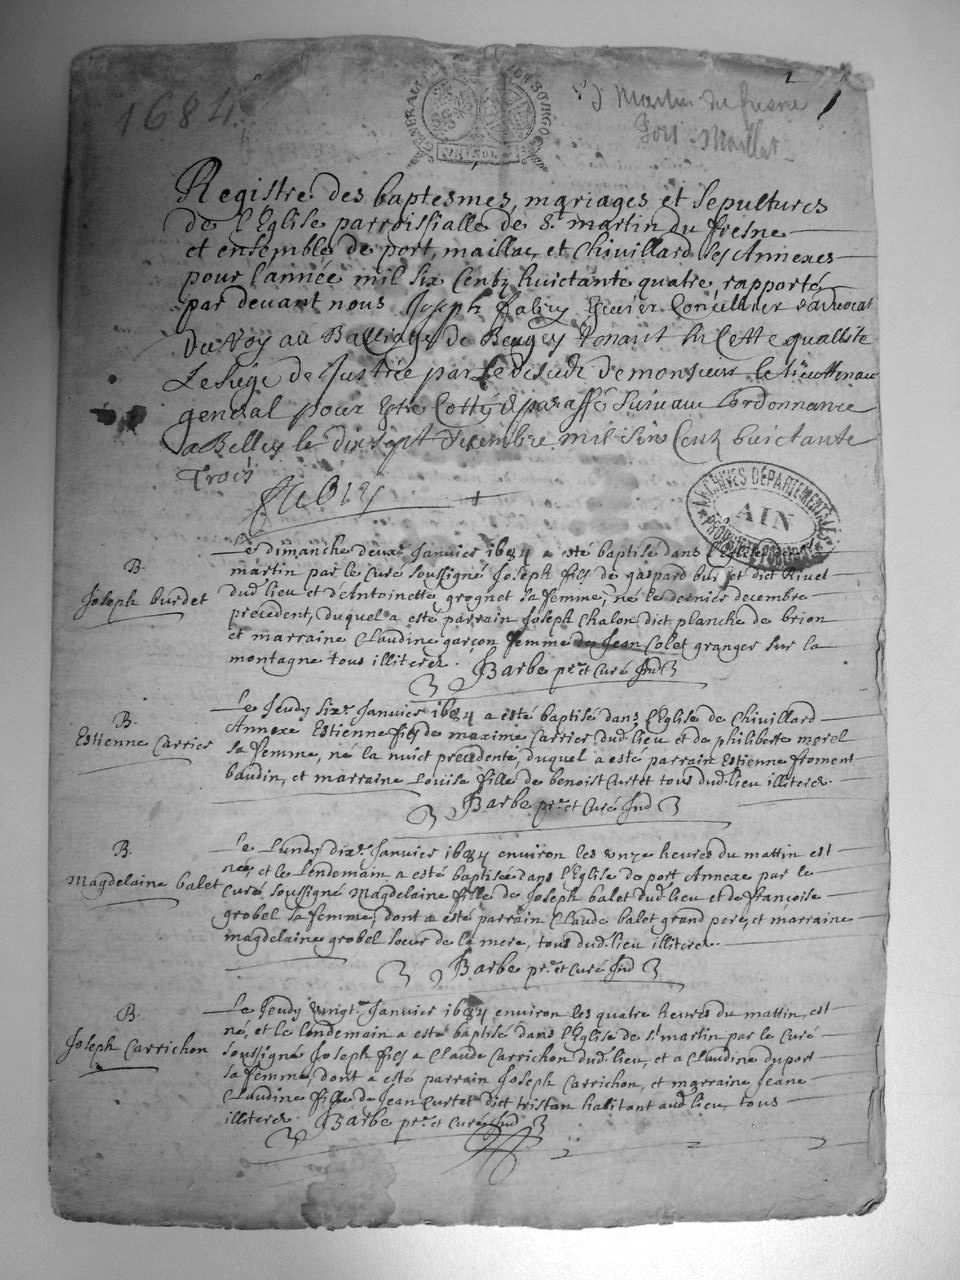 1684
St Martin du fresne
Port Maillat
GENERALITE BOURGOGNE
ARCHIVES DÉPARTEMENTALES
AIN
Registre des baptesmes, mariages et sepultures
de l'Eglise parroissialle de St martin du fresne
et ensemble de port, maillac, et Chivillard ses Annexes
pour l'année mil six Centz huictante quatre, rapporté
par devant nous Joseph fabry Conseiller d'advocat
Du Roy au Balliage de Beugey Tenant En Cette quallité
Le siege de Justice par Le deside de monsieur le lieuttenant
general pour Estre Cotté et paraffé suivant l'ordonnance
a Belley le dix sept decembre mil six Centz huictante
Trois
Fabry
B.
Joseph burdet
Le dimanche deuxe Janvier 1684 a esté baptisé dans l'Eglise
martin par le Curé soussigné Joseph fils de gaspard burdet dict Rivet
dud. lieu et d'Antoinette grognet sa femme, né le dernier decembre
precedent, duquel a esté parrain Joseph Chalon dict planche de brion
et marraine Claudine garçon femme de Jean Colet granger sur la
montagne tous illiterez. Barbe ptre et Curé Ind
B.
Estienne Carrier
Le Jeudy sixe Janvier 1684 a esté baptisé dans l'Eglise de Chivillard
Annexe Estienne fils de maxime Carrier dud. lieu et de philiberte morel
sa femme, né la nuict precedente, duquel a esté parrain Estienne froment
baudin, et marraine Louise fille de benoist Curtet tous dud. lieu illiterez.
Barbe ptre et Curé Ind
B.
Magdelaine balet
Le Lundy dixe Janvier 1684 environ les unze heures du mattin est
née, et le lendemain a esté baptisée dans l'Eglise de port Annexe par le
Curé soussigné Magdelaine fille de Joseph balet dud. lieu et de françoise
grobel sa femme, dont a esté parrain Claude balet grand pere, et marraine
magdelaine grobel soeur de la mere, tous dud. lieu illiterez.
Barbe ptre et Curé Ind
B.
Joseph Carrichon
Le Jeudy vingte Janvier 1684 environ les quatre heures du mattin, est
né, et le lendemain a esté baptisé dans l'Eglise de st martin par le Curé
soussigné Joseph fils a Claude Carrichon dud. lieu, et a Claudine duport
sa femme, dont a esté parrain Joseph Carrichon, et marraine Jeane
Claudine fille de Jean Curtet dict tristan habitant aud. lieu, tous
illiterez. Barbe ptre et Curé Ind